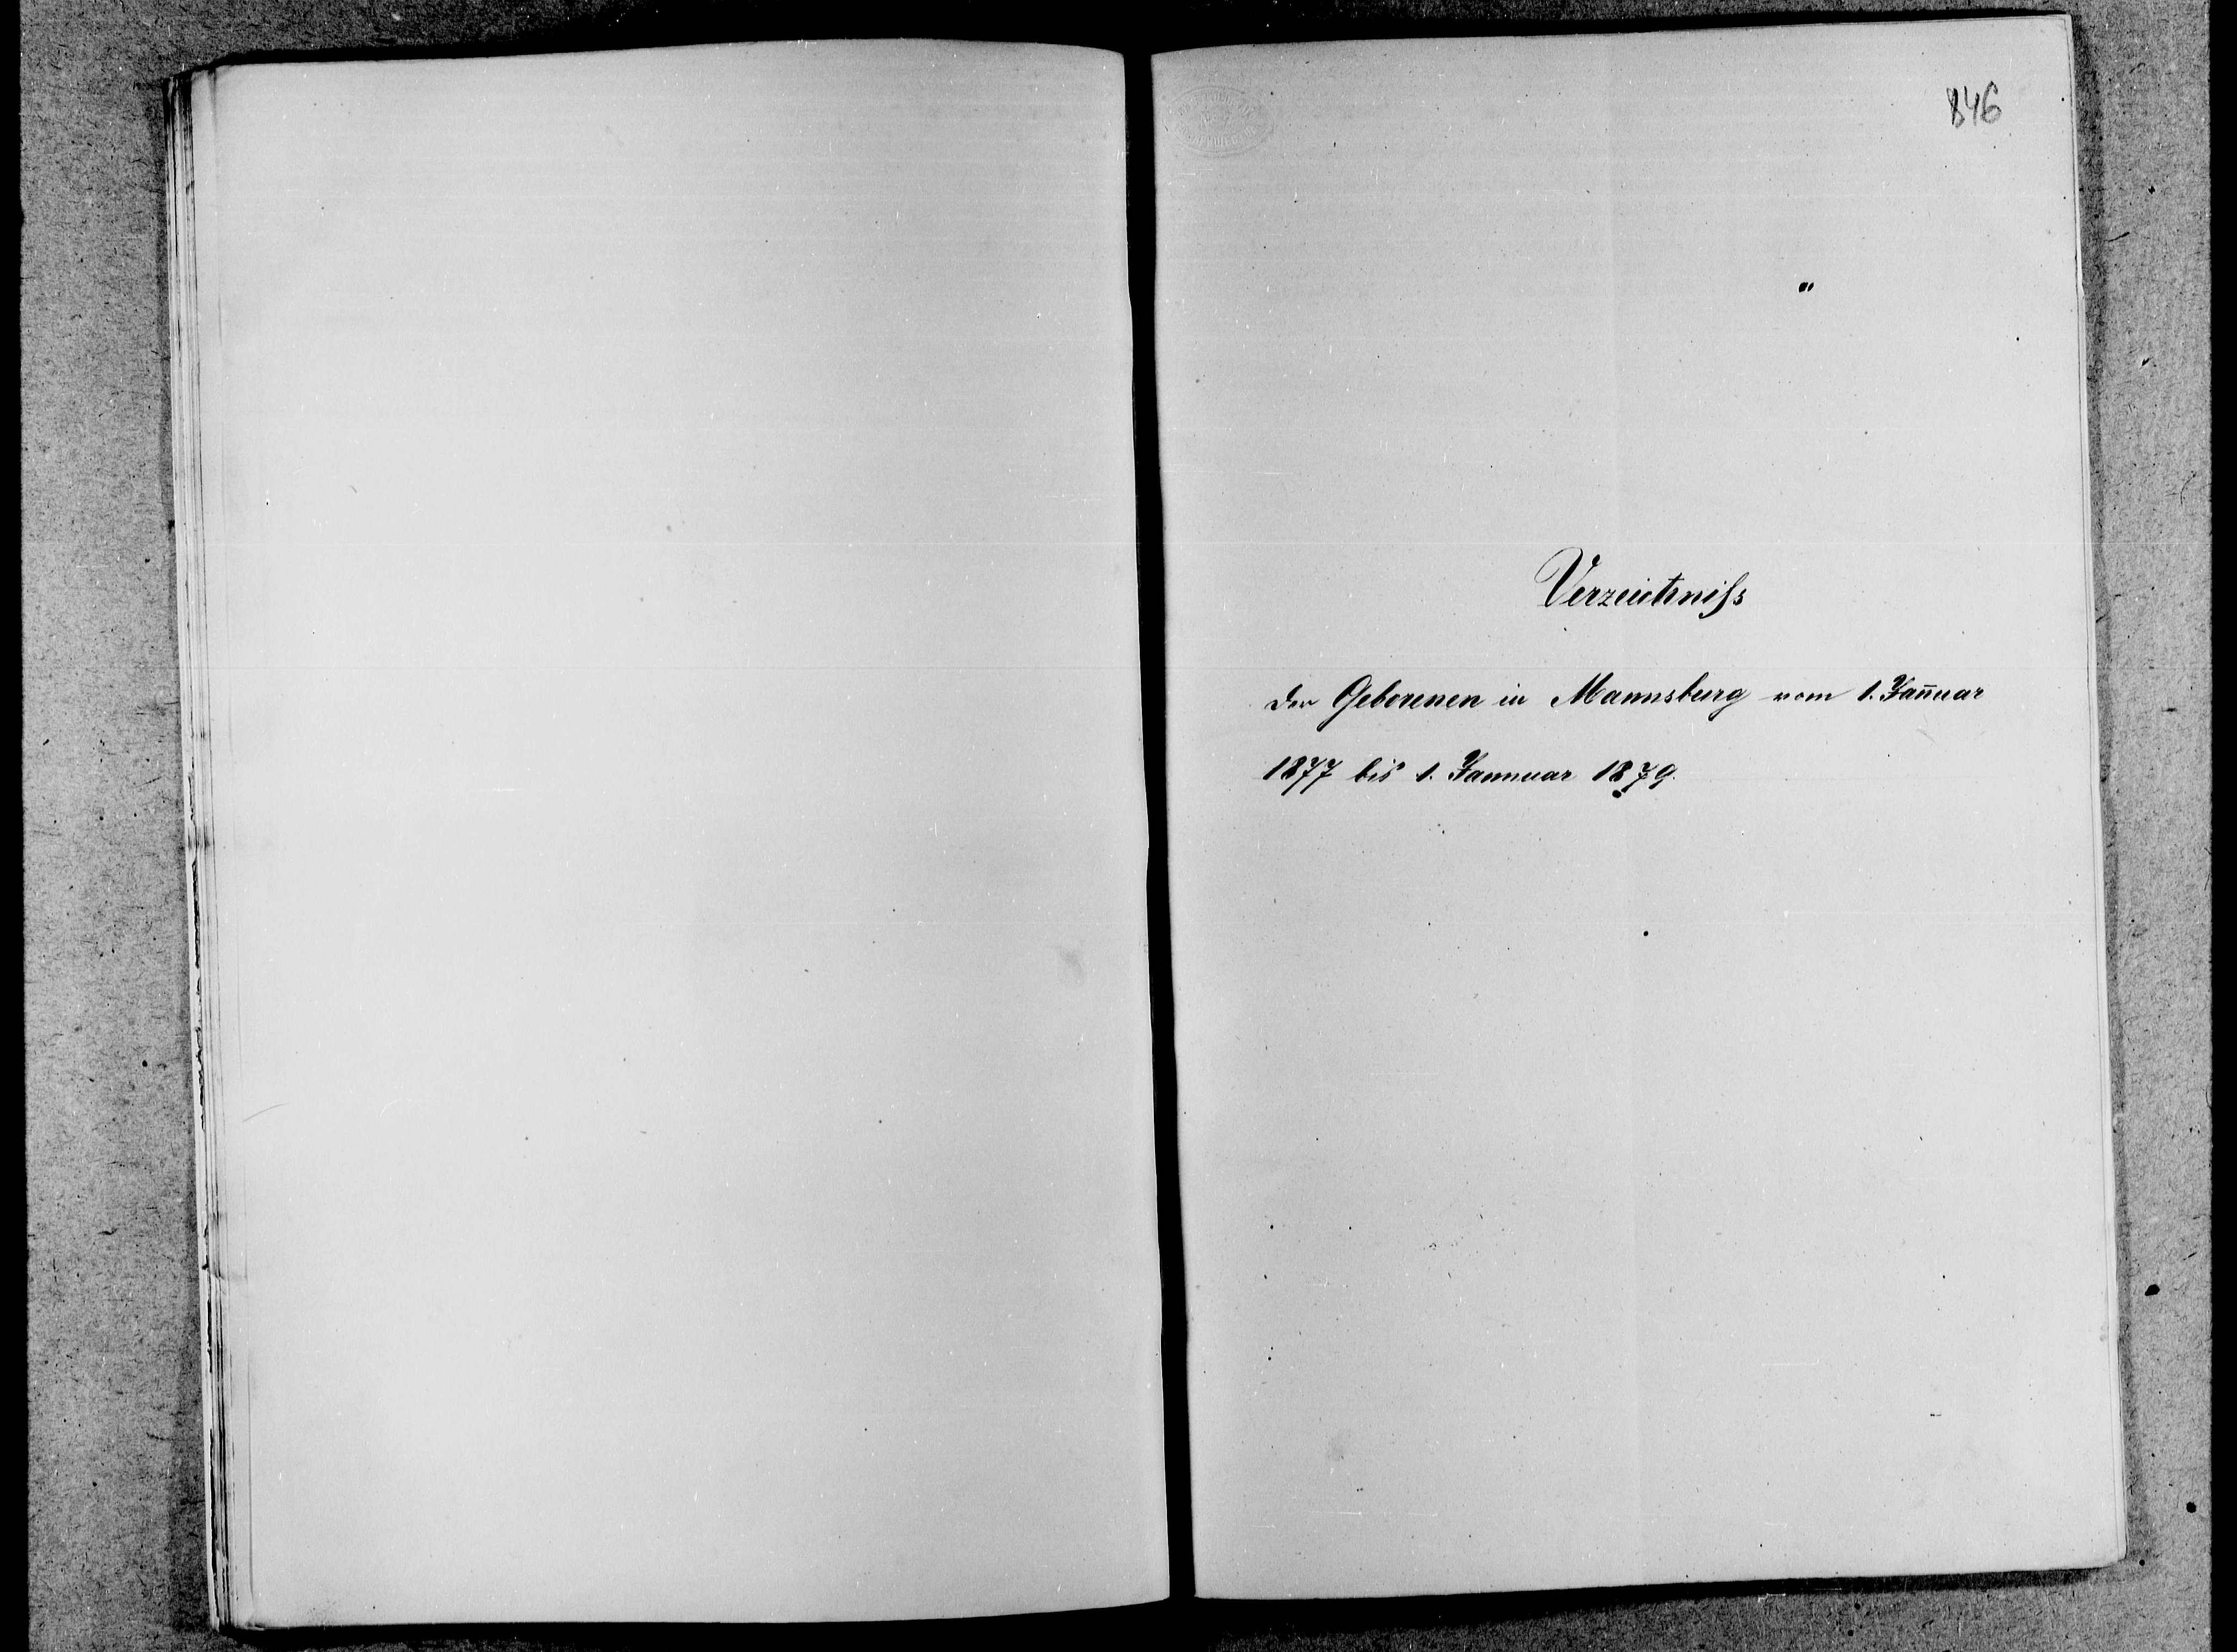 846
Verzeichniss
der Geborenen in Mannsburg vom 1. Jan̄uar
1877 bis 1. Jannuar 1879.